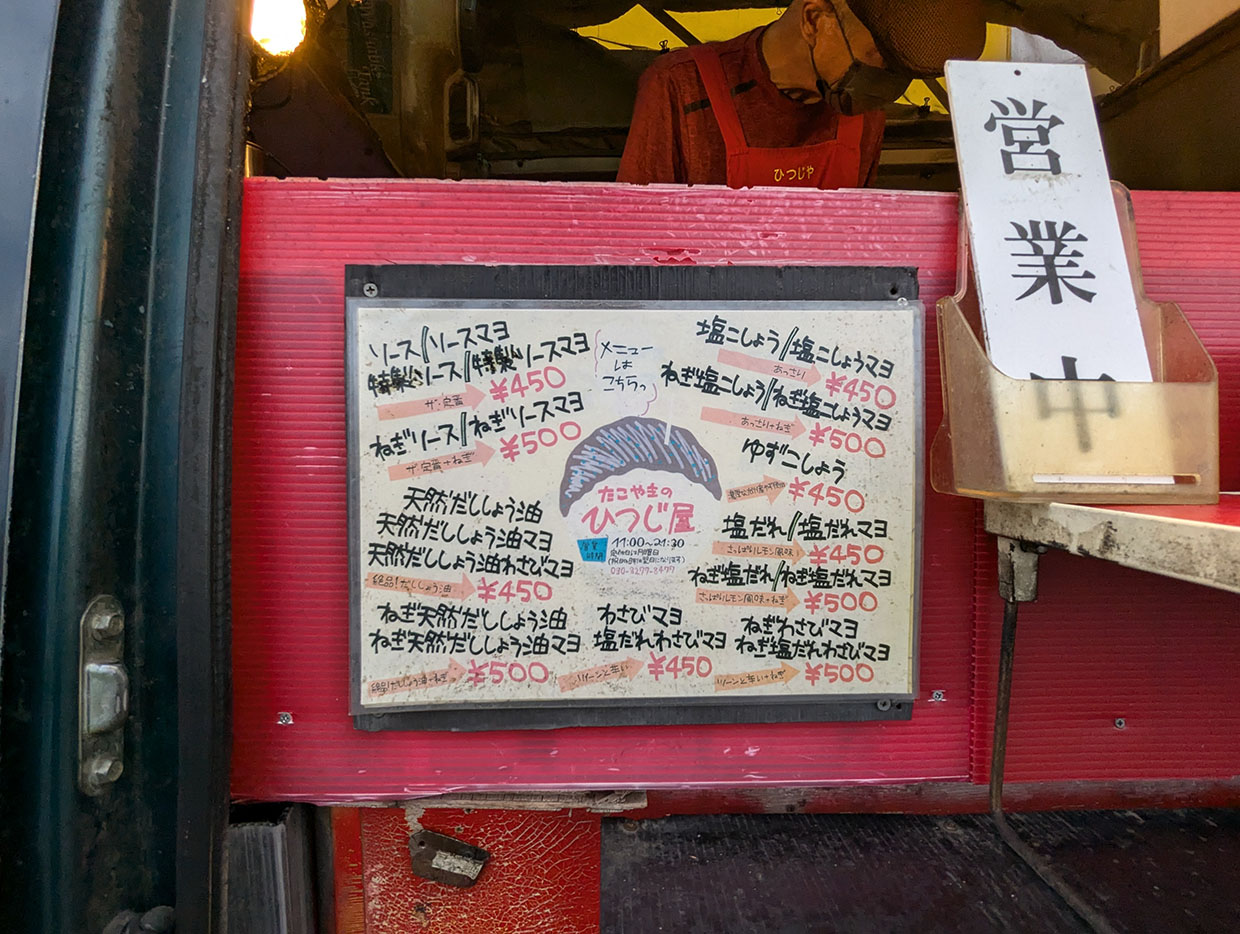 ひつじや
営業中
メニュー
は
こちらっ
ソース//ソースマヨ
特製ソース//特製ソースマヨ
ザ・定番
¥450
ねぎソース//ねぎソースマヨ
ザ・定番+ねぎ
¥500
天然だししょう油
天然だししょう油マヨ
天然だししょう油わさびマヨ
絶品!だししょう油
¥450
ねぎ天然だししょう油
ねぎ天然だししょう油マヨ
絶品!だししょう油+ねぎ
¥500
たこやきの
ひつじ屋
営業
時間
11:00~21:30
定休日は月曜日
わさびマヨ
塩だれわさびマヨ
ツーンと辛い
¥450
塩こしょう//塩こしょうマヨ
あっさり
¥450
ねぎ塩こしょう//ねぎ塩こしょうマヨ
あっさり+ねぎ
¥500
ゆずこしょう
¥450
塩だれ//塩だれマヨ
さっぱりレモン風味
¥450
ねぎ塩だれ//ねぎ塩だれマヨ
さっぱりレモン風味+ねぎ
¥500
ねぎわさびマヨ
ねぎ塩だれわさびマヨ
ツーンと辛い+ねぎ
¥500